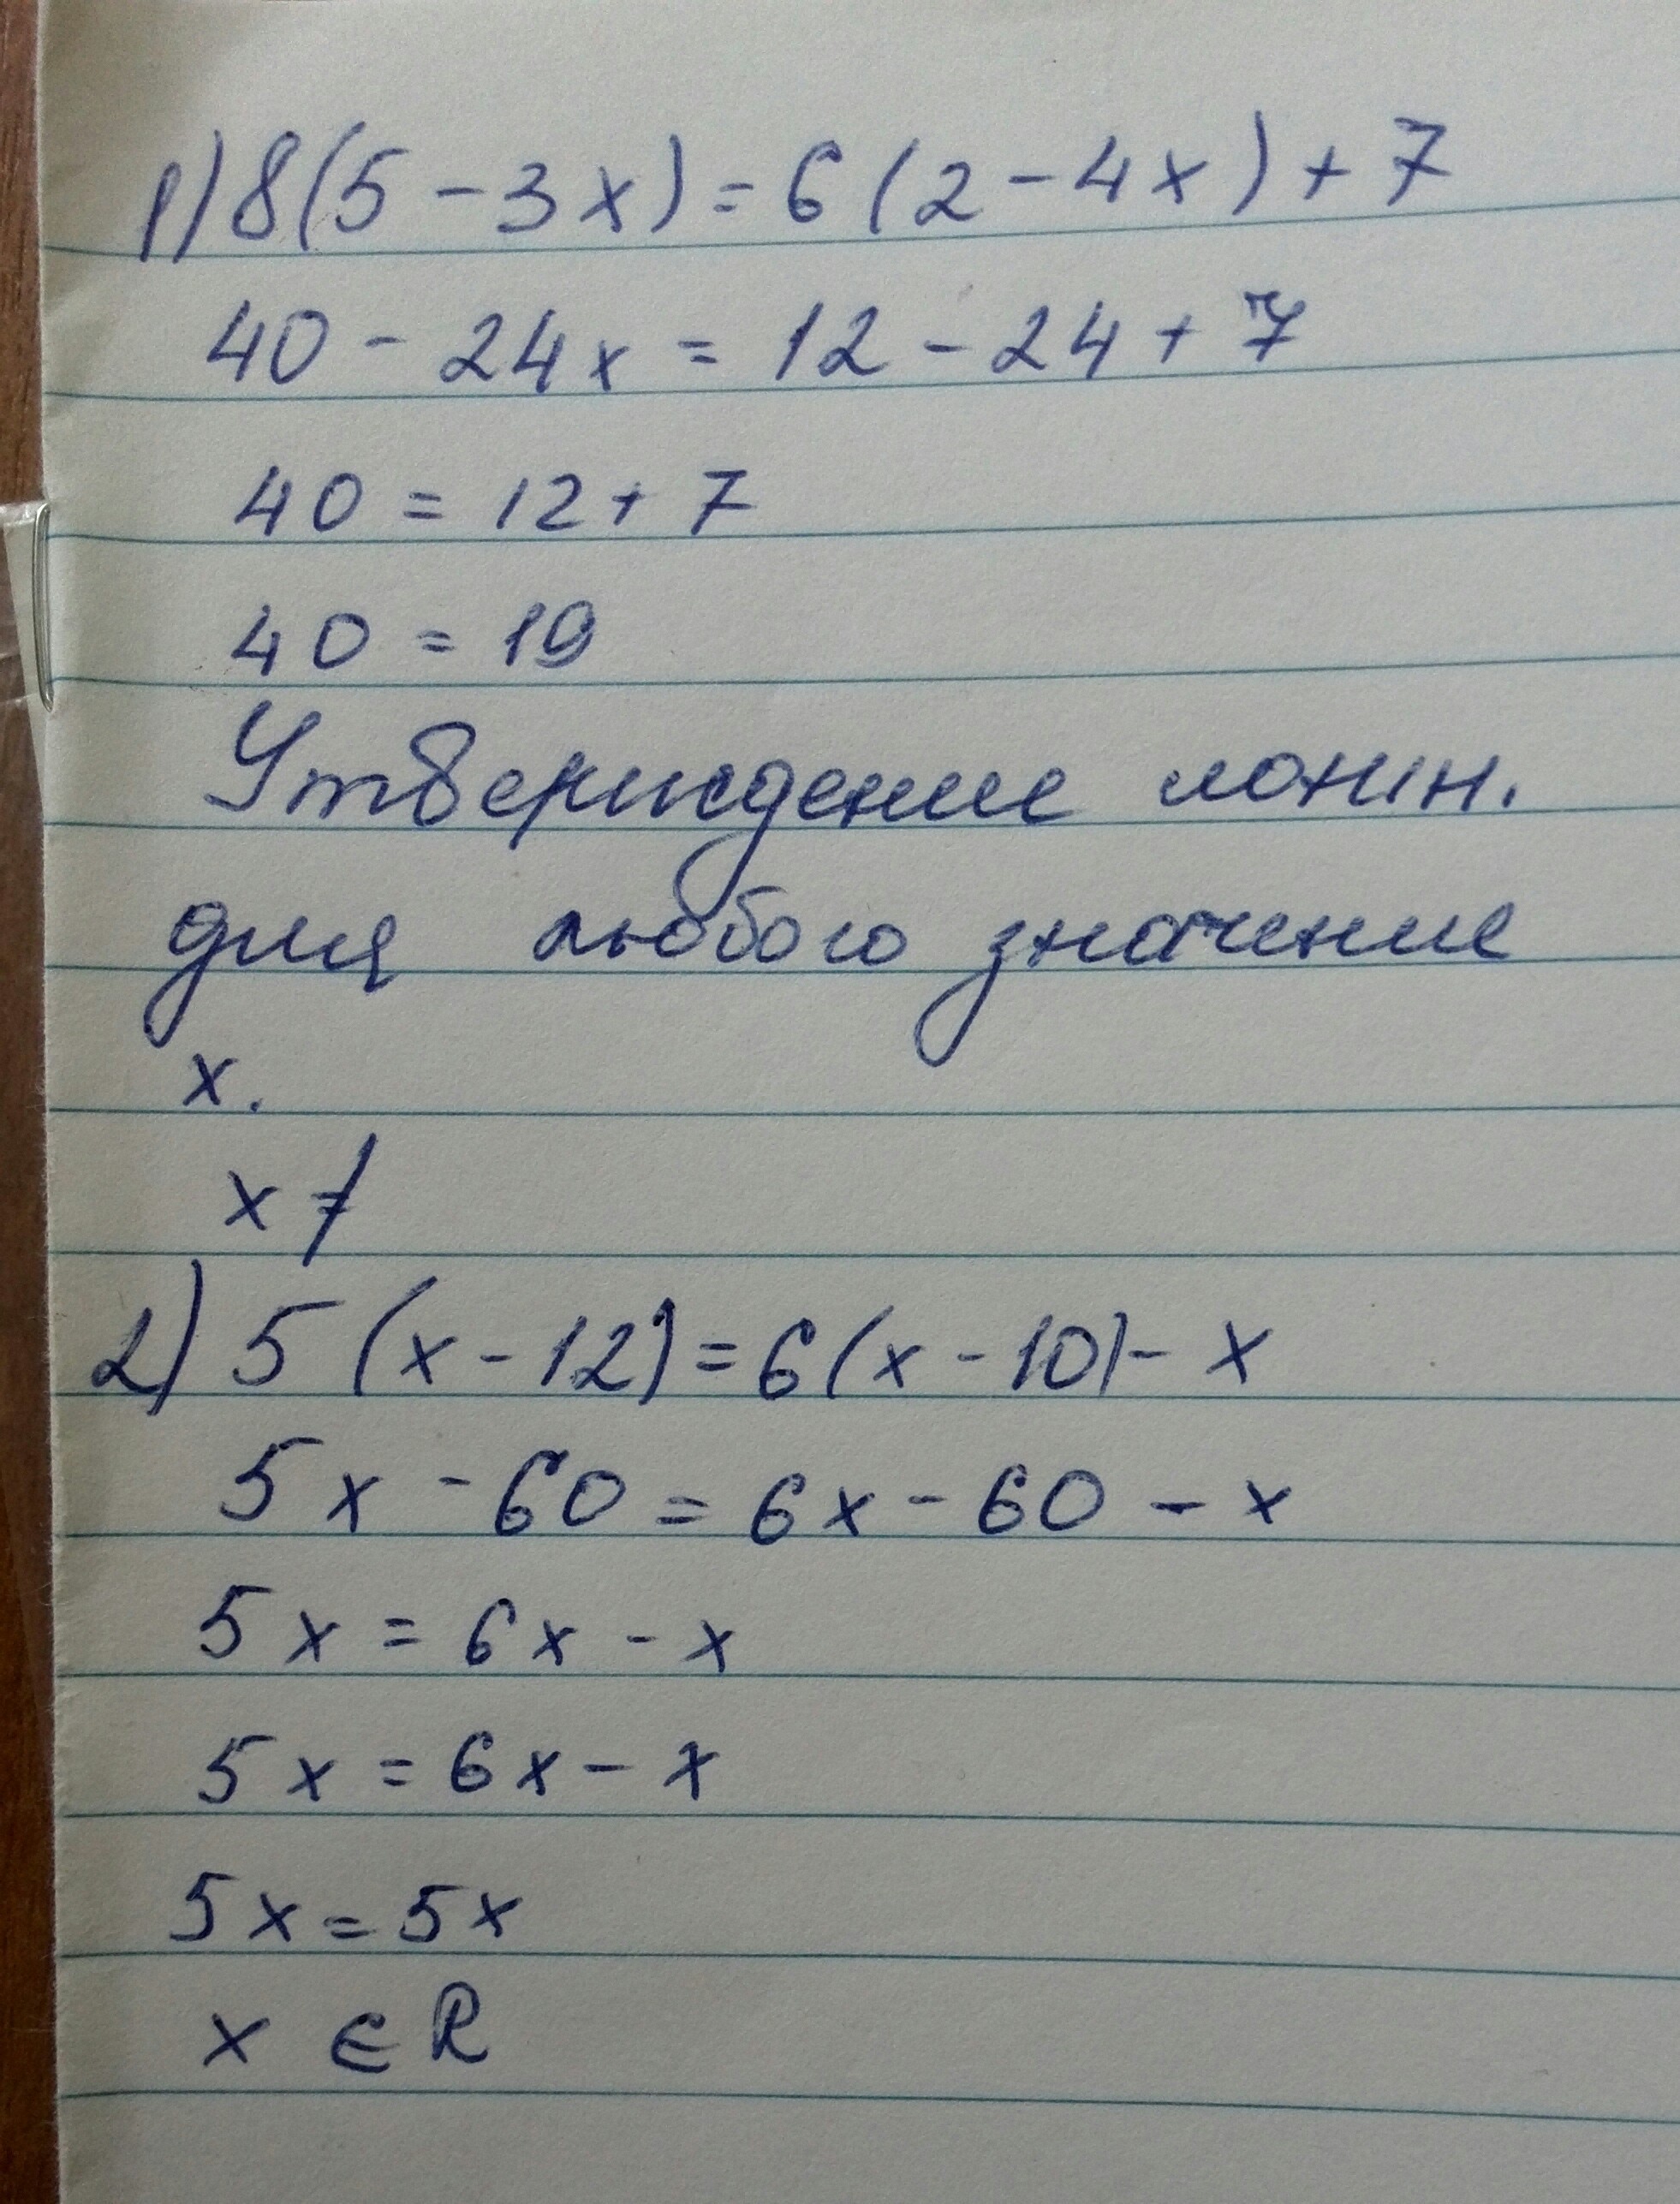 1) 8(5 - 3x) = 6(2 - 4x) + 7
40 - 24x = 12 - 24 + 7
40 = 12 + 7
40 = 19
Утверждение ложн.
для любого значение
x.
x ≠
2) 5(x - 12) = 6(x - 10) - x
5x - 60 = 6x - 60 - x
5x = 6x - x
5x = 6x - x
5x = 5x
x ∈ R